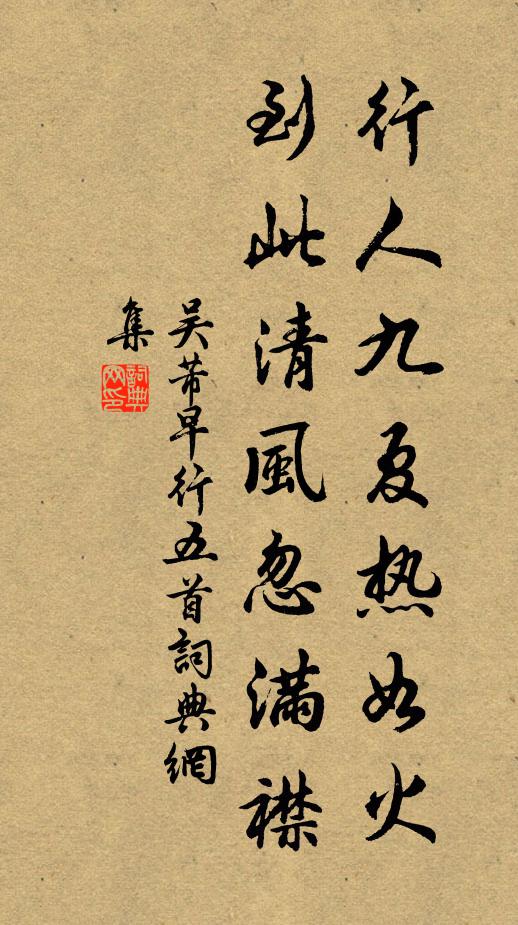 行人九夏热如火
到此清風忽满襟
吴芾早行五首詞典網
集
詞典網印